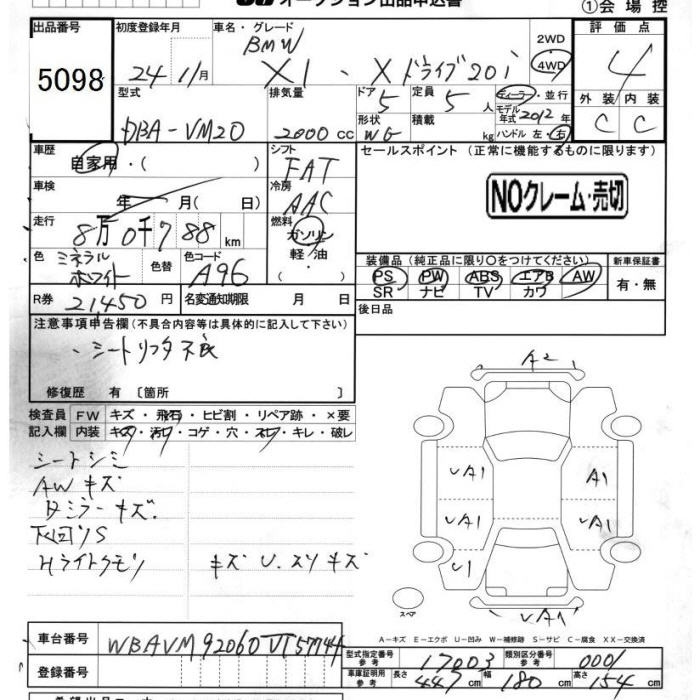 オークション出品申込書
①会場控
出品番号 5098
初度登録年月 24年 11月
車名・グレード BMW X1・Xドライブ20i
2WD 4WD
評価点 4
外装 C 内装 C
型式 DBA-VM20
排気量 2000 cc
ドア 5 形状 WG
定員 5人 積載 kg
ディーラー・並行
モデル年式 2012年
ハンドル 左・右
車歴 自家用・( )
シフト FAT
セールスポイント (正常に機能するものに限ります)
NOクレーム・売切
車検 年 月( 日)
冷房 AAC
走行 8万0千788km
燃料 ガソリン 軽油・( )
色 ミネラルホワイト 色替
色コード A96
装備品(純正品に限り○をつけてください) 新車保証書
PS PW ABS エアB AW 有・無
SR ナビ TV カワ
R券 21,450円 名変通知期限 月 日
後日品
注意事項申告欄(不具合内容等は具体的に記入して下さい)
・シートリフタ不良
修復歴 有〔箇所 〕
検査員 FW キズ・飛石・ヒビ割・リペア跡・×要
記入欄 内装 キズ・汚れ・コゲ・穴・スレ・キレ・破レ
シートシミ
AWキズ
ミラーキズ.
下回りS
Hライトクモリ キズ U.スリキズ
A2
UA1 A1
UA1 UA1
U1
UA1
スペア
A-キズ E-エクボ U-凹み W-補修跡 S-サビ C-腐食 XX-交換済
車台番号 WBAVM92060
型式指定番号 参考 17003 類別区分番号 参考 0001
登録番号
車庫証明用 参考 長さ 447cm 幅 180cm 高さ 154cm